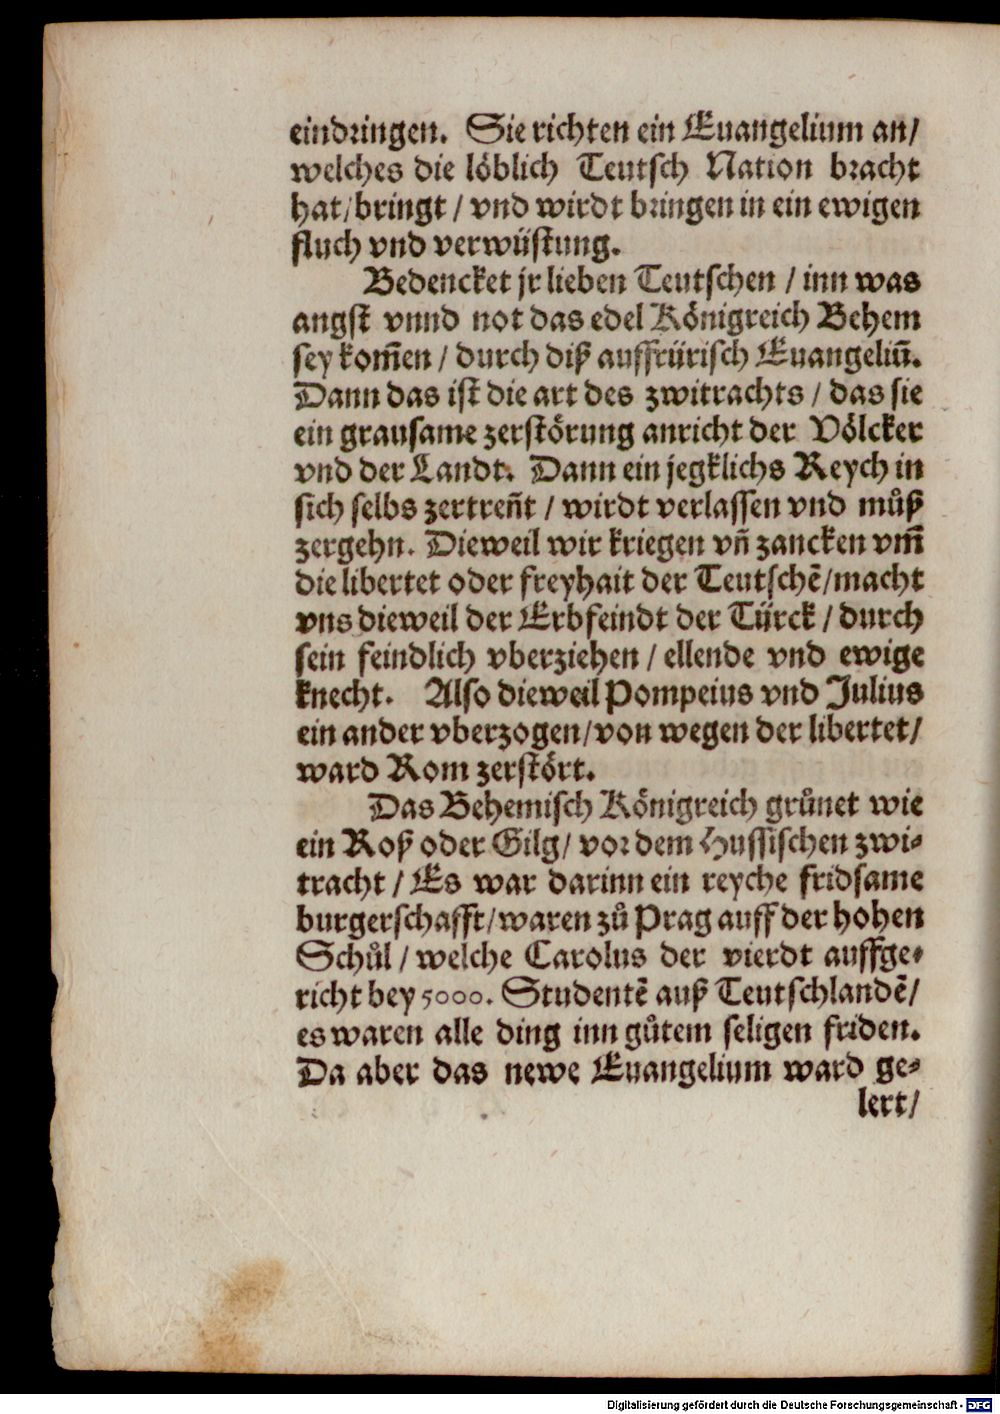 eindꝛingen. Sie richten ein Euangelium an/
welches die löblich Teutsch Nation bꝛacht
hat/bringt / vnd wirdt bꝛingen in ein ewigen
fluch vnd verwüstung.
Bedencket jr lieben Teutschen / inn was
angst vnnd not das edel Königreich Behem
sey kom̄en / durch diß auffrürisch Euangeliū.
Dann das ist die art des zwitrachts / das sie
ein grausame zerstörung anricht der Völcker
vnd der Landt. Dann ein jegklichs Reych in
sich selbs zertreñt / wirdt verlassen vnd můß
zergehn. Dieweil wir kriegen vñ zancken vm̄
die libertet oder freyhait der Teutschē/macht
vns dieweil der Erbfeindt der Türck / durch
sein feindlich vberziehen / ellende vnd ewige
knecht. Also dieweil Pompeius vnd Julius
ein ander vberzogen/von wegen der libertet/
ward Rom zerstört.
Das Behemisch Königreich grůnet wie
ein Roß oder Gilg/ voꝛ dem Hussischen zwi-
tracht / Es war darinn ein reyche fridsame
burgerschafft/waren zů Prag auff der hohen
Schůl / welche Carolus der vierdt auffge-
richt bey 5000. Studentē auß Teutschlandē/
es waren alle ding inn gůtem seligen friden.
Da aber das newe Euangelium ward ge-
lert/
Digitalisierung gefördert durch die Deutsche Forschungsgemeinschaft - DFG